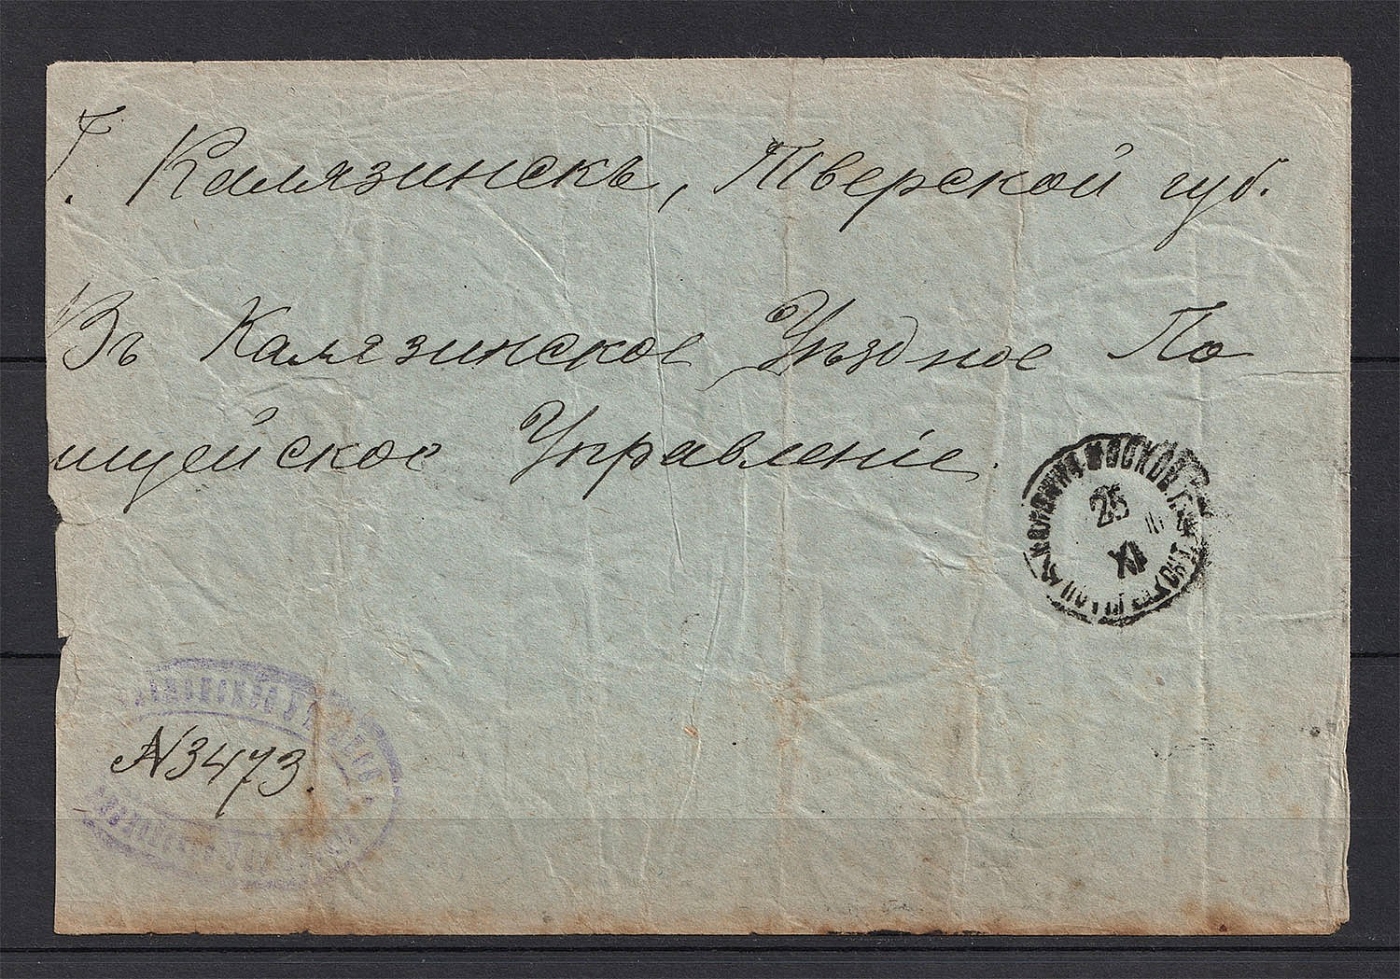 Г. Калязинскъ, Тверской губ.
Въ Калязинское Уѣздное По
лицейское Управленіе.
25
XI
№3473.